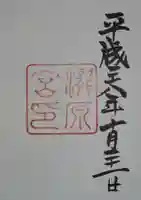 平成二八年十月三十一日
瀧原
宮印